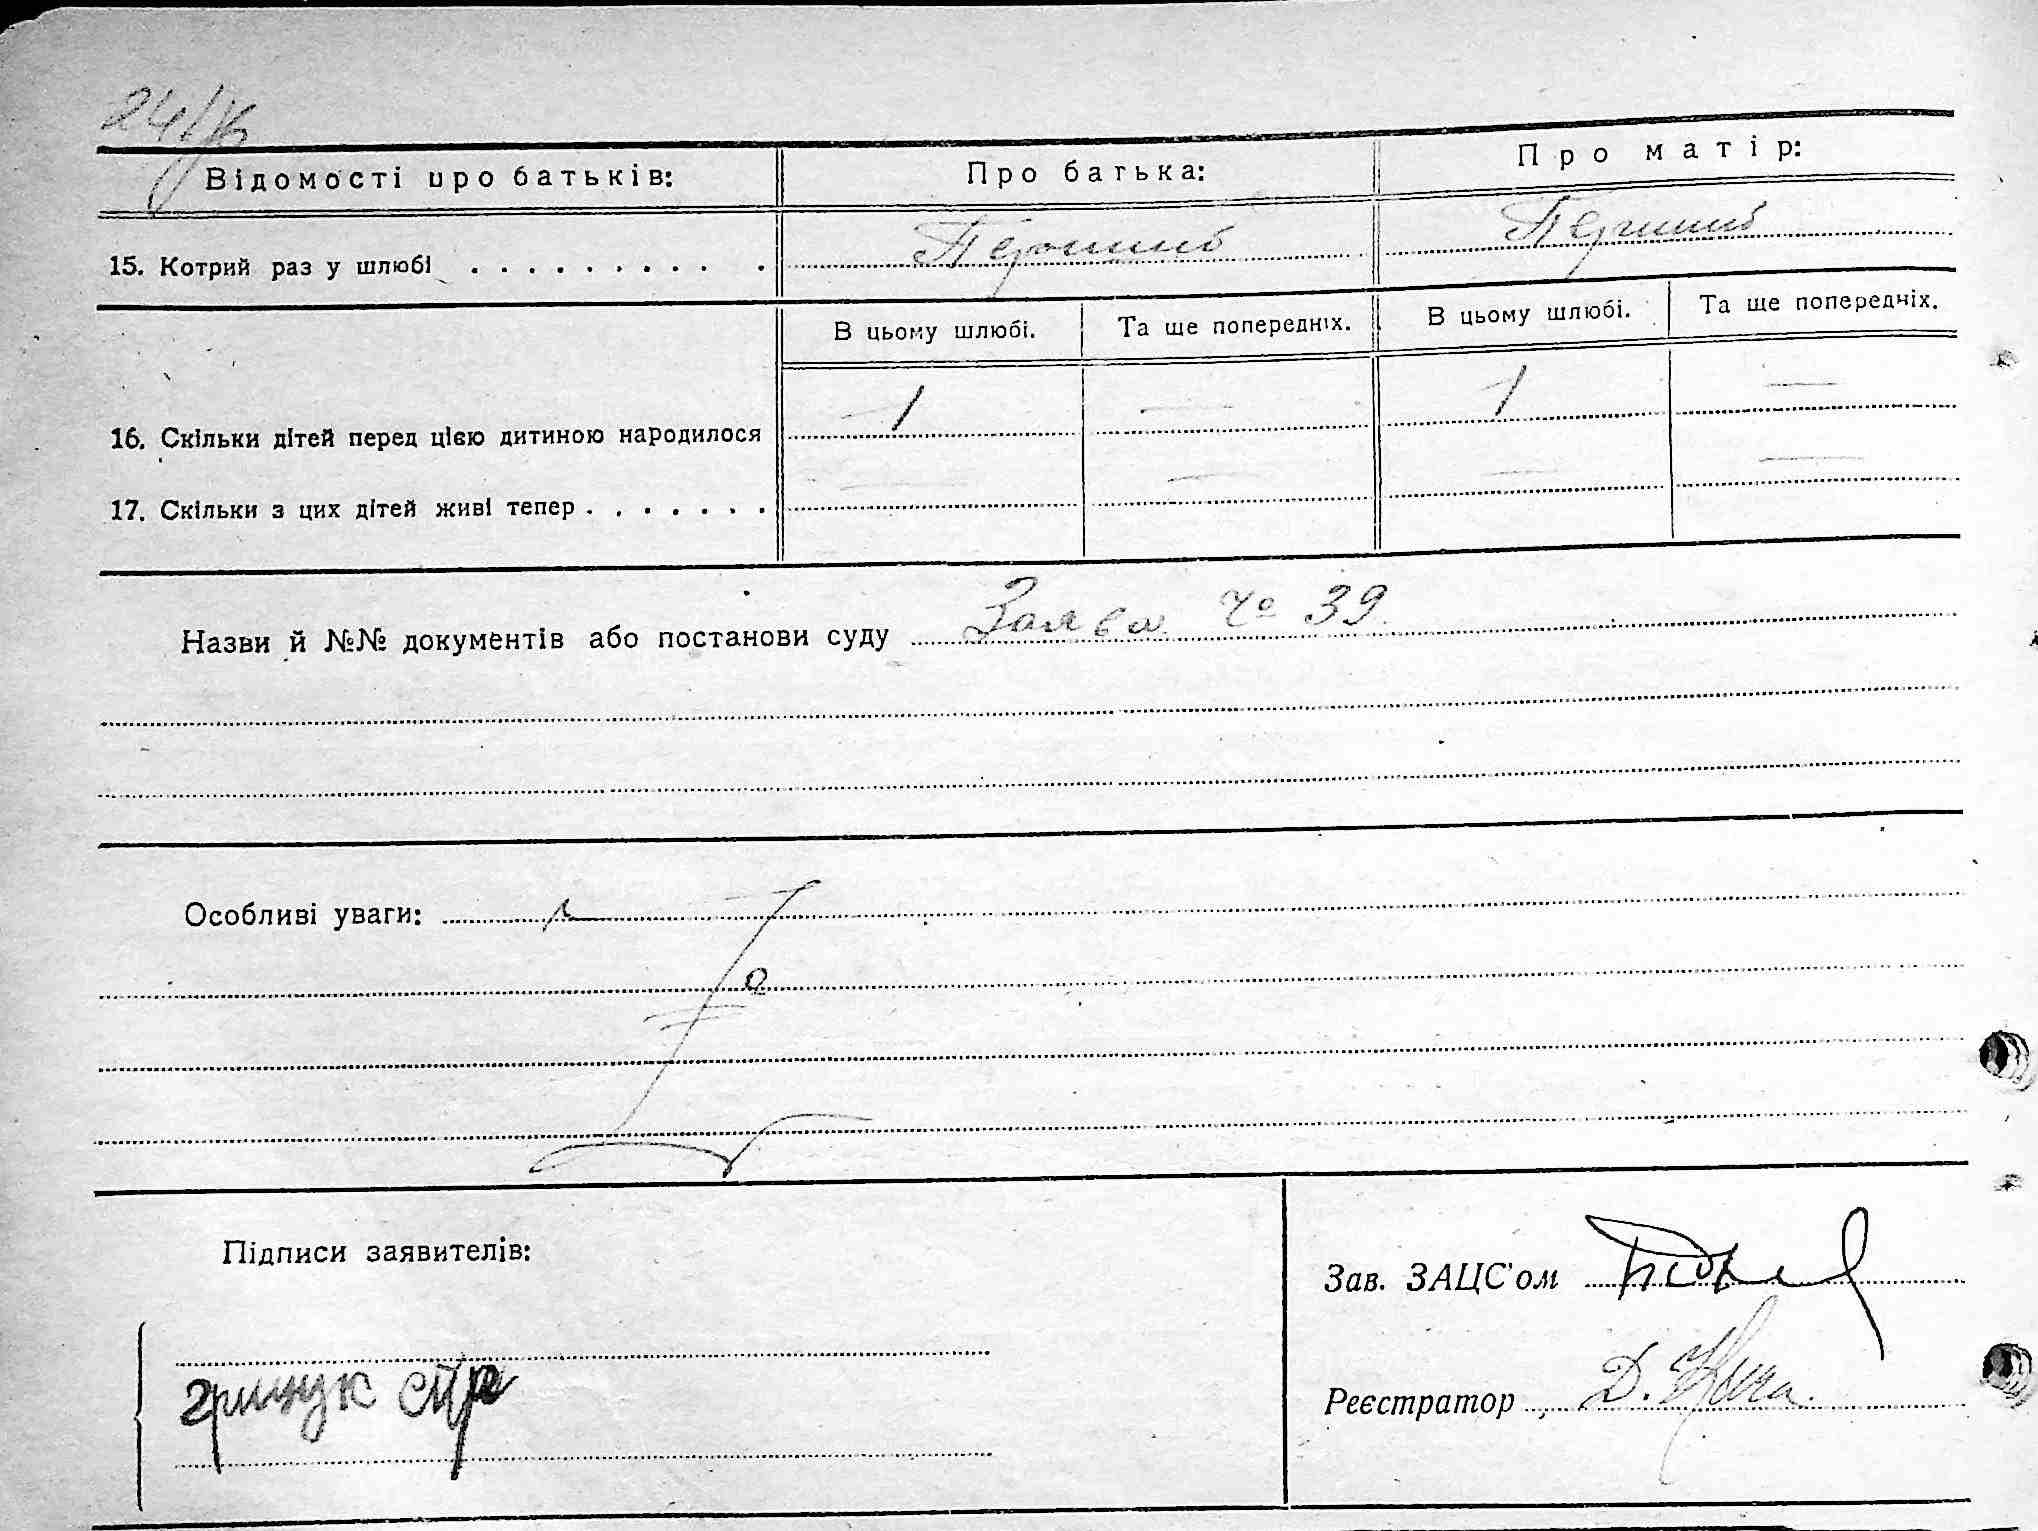 Відомості про батьків: Про батька: Про матір:
15. Котрий раз у шлюбі . . . . . . . . . . Перший Перший
В цьому шлюбі. Та ще попередніх. В цьому шлюбі. Та ще попередніх.
16. Скільки дітей перед цією дитиною народилося 1 — 1 —
17. Скільки з цих дітей живі тепер . . . . . . . — — — —
Назви й №№ документів або постанови суду Заява № 39
Особливі уваги:
Підписи заявителів:
Зав. ЗАЦС'ом
грищук
Реєстратор Д.